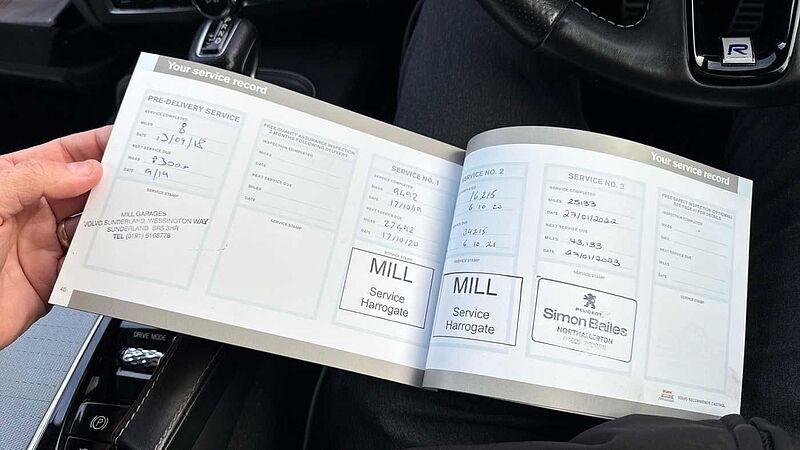 Your service record
PRE-DELIVERY SERVICE
SERVICE COMPLETED
MILES 8
DATE 13/09/18
NEXT SERVICE DUE
MILES
DATE 9/19
SERVICE STAMP
MILL GARAGES
VOLVO SUNDERLAND, WESSINGTON WAY
SUNDERLAND. SR5 3HR
TEL (0191) 5168778
40
FREE QUALITY ASSURANCE INSPECTION
3 MONTHS FOLLOWING DELIVERY
INSPECTION COMPLETED
MILES
DATE
NEXT SERVICE DUE
MILES
DATE
SERVICE STAMP
SERVICE NO. 1
SERVICE COMPLETED
MILES 9492
DATE 17/10/19
SERVICE DUE
27492
17/10/20
SERVICE STAMP
MILL
Service
Harrogate
Your service record
SERVICE NO. 2
COMPLETED
16215
6 10 20
SERVICE DUE
34215
6 10 21
SERVICE STAMP
MILL
Service
Harrogate
SERVICE NO. 3
SERVICE COMPLETED
MILES 25,133
DATE 27/01/2022
NEXT SERVICE DUE
MILES 43,133
DATE 27/01/2023
SERVICE STAMP
PEUGEOT
Simon Bailes
NORTHALLERTON
FREE SAFETY INSPECTION (OPTIONAL)
INSPECTION COMPLETED
MILES
DATE
NEXT SERVICE DUE
MILES
DATE
SERVICE STAMP
VOLVO RECOMMENDS CASTROL
DRIVE MODE
R
P